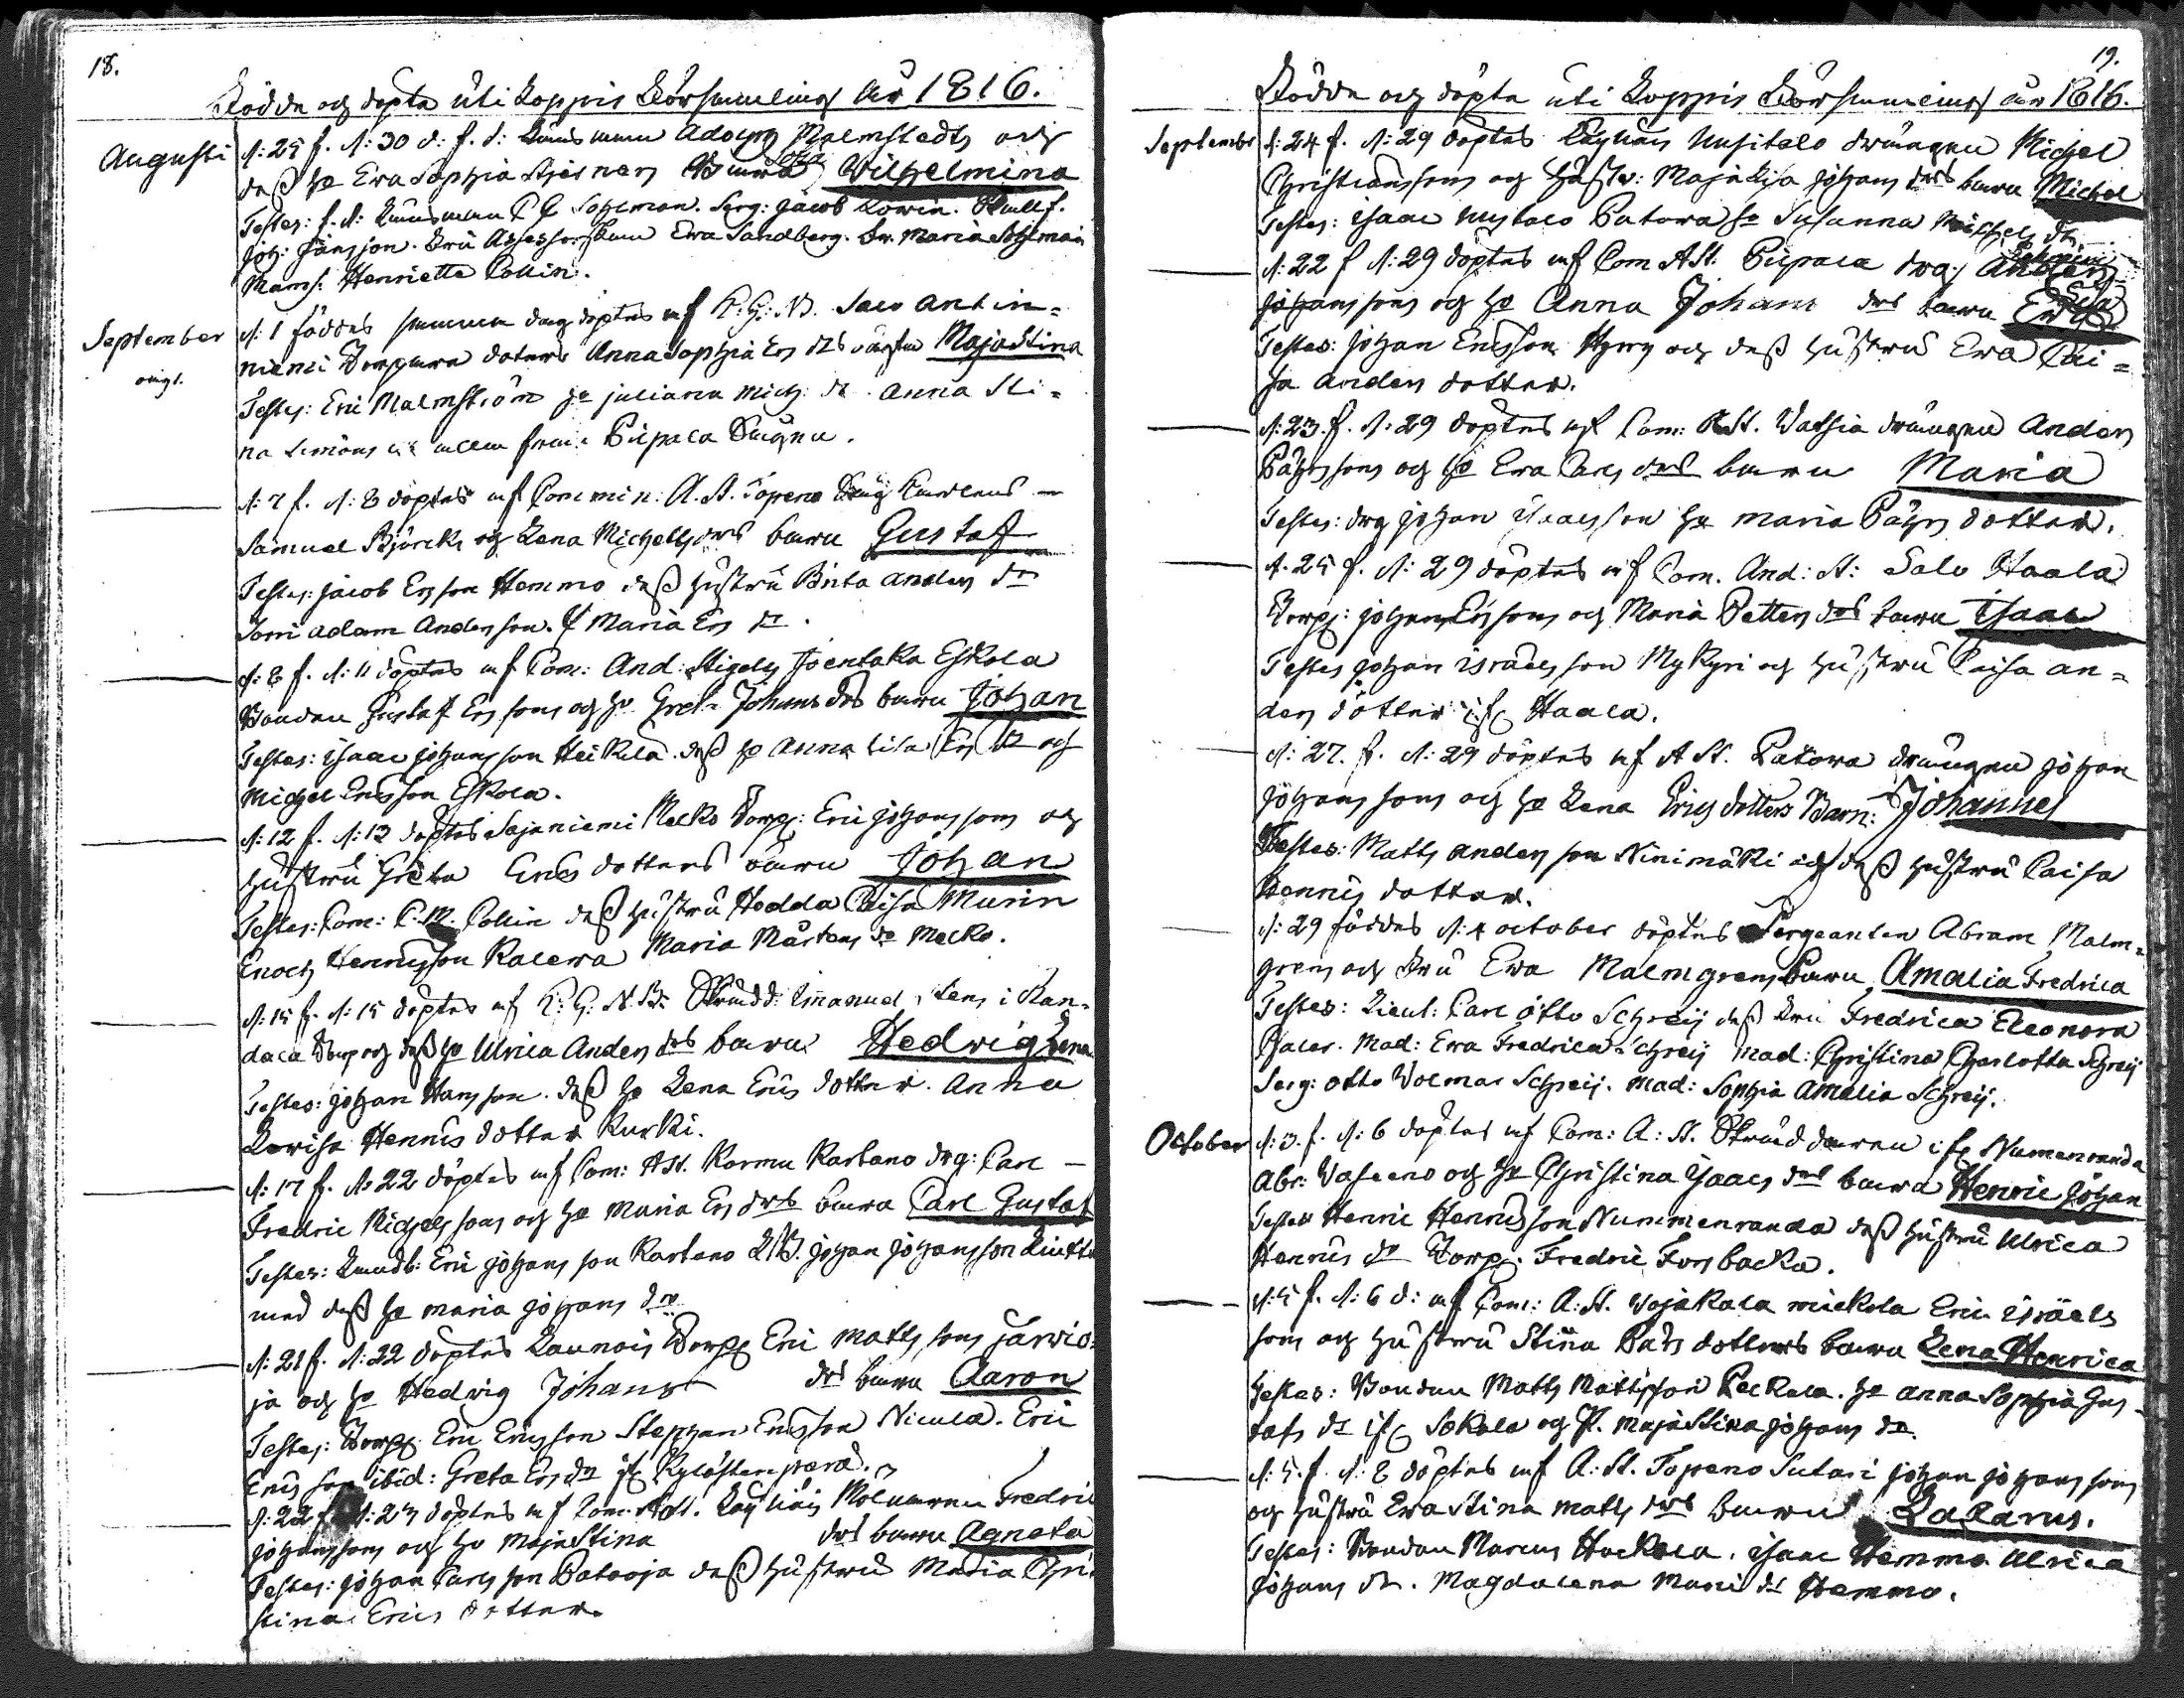 18.
Födde og döpte uti Loppis Församling år 1816.
Augusti
d: 25 f. d: 30 d: f. d: Länsman Adolph Malmstedts och
dess ho Eva Sophia Stjernens Barn Wilhelmina
Testes: f. d: Länsman Sohlman. Serg: Jacob Lowin. Skallf.
Joh: Jansson. Fru Assessorskan Eva Sandberg. Fr. Maria Sohlman
Mams: Henriette Collin.
September
oägt.
d: 1 föddes samma dag döptes af K. G. N. B. Salo antin=
niemi Torpare dotters Anna Sophia Ers drs oägta Maja Stina
Testes: Eric Malmström ho Juliana Mich: dr. Anna Sti=
na Simons dr allem från Pilpala
d: 7 f. d: 8 döptes af Commin: A. St. Topeno
Samuel Björcks og Lena Michells drs barn Gustaf
Testes: Jacob Ersson Hemmo dess hustru Brita Anders dr
Jorri Adam Andersson. P. Maria Ers dr.
d: 8 f. d: 11 döptes af Com: And: Stigels Joentaka Eskola
Bonden Gustaf Erssons og ho Greta Johans drs barn Johan
Testes: Isaac Johansson Heikkilä. dess ho Anna Lisa Ers dr och
Michel Ericsson Eskola.
d: 12 f. d: 13 döptes Sajaniemi Melko Torp: Eric Johanssons och
hustru Greta Erics dotters barn Johan
Testes: Com: C. M. Collin dess hustru Hedda Caisa Murin
Enoch Hennricsson Kalewa Maria Mårtens dr Melko.
d: 15 f. d: 15 döptes af K: G: N. B. Skrädd: Emanuel Lens i Kan=
dala Torp og dess ho Ulrica Anders drs barn Hedvig Lena
Testes: Johan Hansson. dess ho Lena Erics dotter. Anna
Lovisa Henrics dotter Kurki.
d: 17 f. d: 22 döptes af Com: A St. Kormu Kartano drg: Carl
Fredric Michelssons og ho Maria Ers drs barn Carl Gustaf
Testes: Landb: Eric Johansson Kartano L. B. Johan Johansson
med dess ho Maria Johans dr
d: 21 f. d: 22 döptes Launois Torp: Eric Mattssons Järvio=
ja och ho Hedvig Johans drs barn Aaron
Testes: Torp: Eric Ericsson Stephan Ericsson Nicula. Eric
Ericsson ibid: Greta Ers dr if Kylöstenperä.
d: 22 f. d: 23 döptes af Com: A St. Läyliäis Målaren Fredric
Johanssons och ho Maja Stina drs barn Agneta
Testes: Johan Carlsson Patooja dess hustru Maria Chri
stina Erics dotter.
19.
Födde och döpte uti Loppis Församling år 1816.
September
d: 24 f. d: 29 döptes Läyliäis Uusitalo drängen Michel
Christianssons og hustr: Maja Lisa Johans drs barn Michel
Testes: Isaac Uusitalo Patowa ho Susanna Michels dr.
d: 22 f d: 29 döptes af Com A St. Pilpala drg: Anders
Johanssons og ho Anna Johans drs barn Eva
Testes: Johan Ericsson Myrg och dess hustru Ewa Cai=
sa Anders dotter.
d: 23. f. d: 29 döptes af Com: A St. Watsia drängen Anders
Påhlssons og ho Ewa Carls drs barn Maria
Testes: drg Johan Isaacsson ho Maria Påhls dotter.
d. 25 f. d: 29 döptes af Com. And: St: Salo Haala
Torp: Johan Erssons och Maria Petters drs barn Isaac
Testes Johan Israelsson Mykyri og hustru Caisa An=
ders dotter if Haala.
d: 27. f. d: 29 döptes af A St. Patowa drängen Johan
Johanssons och ho Lena Erics dotters Barn: Johannes
Testes: Matts Andersson Ninimäki och dess hustru Caisa
Henrics dotter.
d: 29 föddes d: 4 october döptes Sergeanten Abram Malm=
grens och Fru Ewa Malmgrens Barn Amalia Fredrica
Testes: Lieut: Carl Otto Schreij dess Fru Fredrica Eleonora
Mad: Ewa Fredrica Schreij Mad: Christina Charlotta Schreij
Serg: Otto Wolmar Schreij. Mad: Sophia Amalia Schreij.
October
d: 3. f. d: 6 döptes af Com: A: St. Skräddaren if Numenranda
Abr: Waseno och ho Christina Isaacs drs barn Henric Johan
Testes Henric Henricsson Nummenranda dess hustru Ulrica
Henrics dr Torp. Fredric Forsbacka.
d: 5 f. d: 6 d: af Com: A: St. Wojakala Mickola Eric Israels
sons og hustru Stina Påhls dotters barn Lena Henrica
Testes: Bonden Matts Mattsson Peckala. ho Anna Sophia Gus=
tafs dr if Sokala og P. Maja Stina Johans dr.
d: 5. f. d: 8 döptes af A: St. Topeno Sutari Johan Johanssons
og hustru Ewa Stina Matts drs barn Zakarus.
Testes: Bonden Marcus Hackala. Isaac Hemmo Ulrica
Johans dr. Magdalena Mari dr Hemmo.